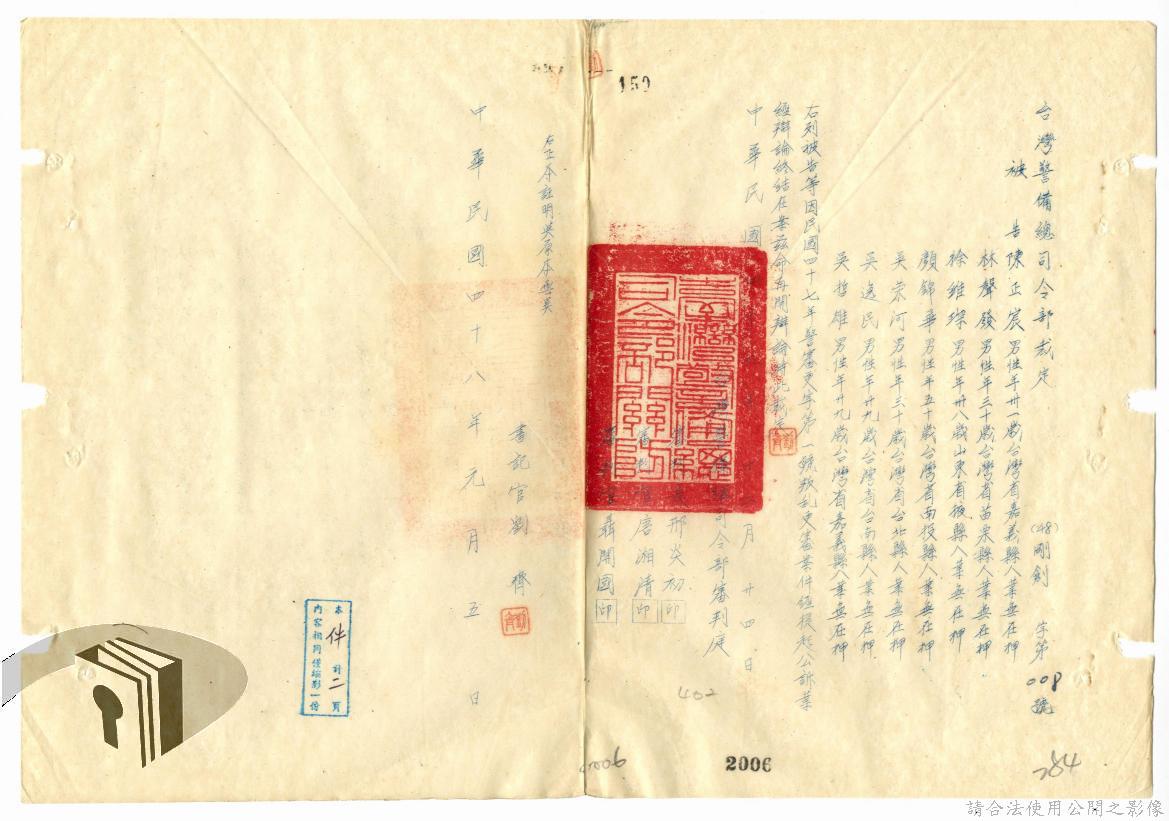 159
台灣警備總司令部裁定
(48)剛創 字第008號
被告 陳正宸 男性年卅一歲台灣省嘉義縣人業無在押
林聲發 男性年三十歲台灣省苗栗縣人業無在押
徐維琛 男性年卅八歲山東省掖縣人業無在押
顏錦華 男性年五十歲台灣省南投縣人業無在押
吳榮河 男性年三十歲台灣省台北縣人業無在押
吳逸民 男性年廿九歲台灣省台南縣人業無在押
吳哲雄 男性年廿九歲台灣省嘉義縣人業無在押
右列被告等因民國四十七年警審更字第一號叛亂更審案件經提起公訴業
經辯論終結在案茲命再開辯論特此裁定
中華民國 月廿四日
司令部審判庭
邢炎初 印
唐湘清 印
聶開國 印
右正本證明與原本無異
書記官劉齊
中華民國四十八年元月五日
本件計二頁
內容相同僅縮影一份
402
2006
284
請合法使用公開之影像